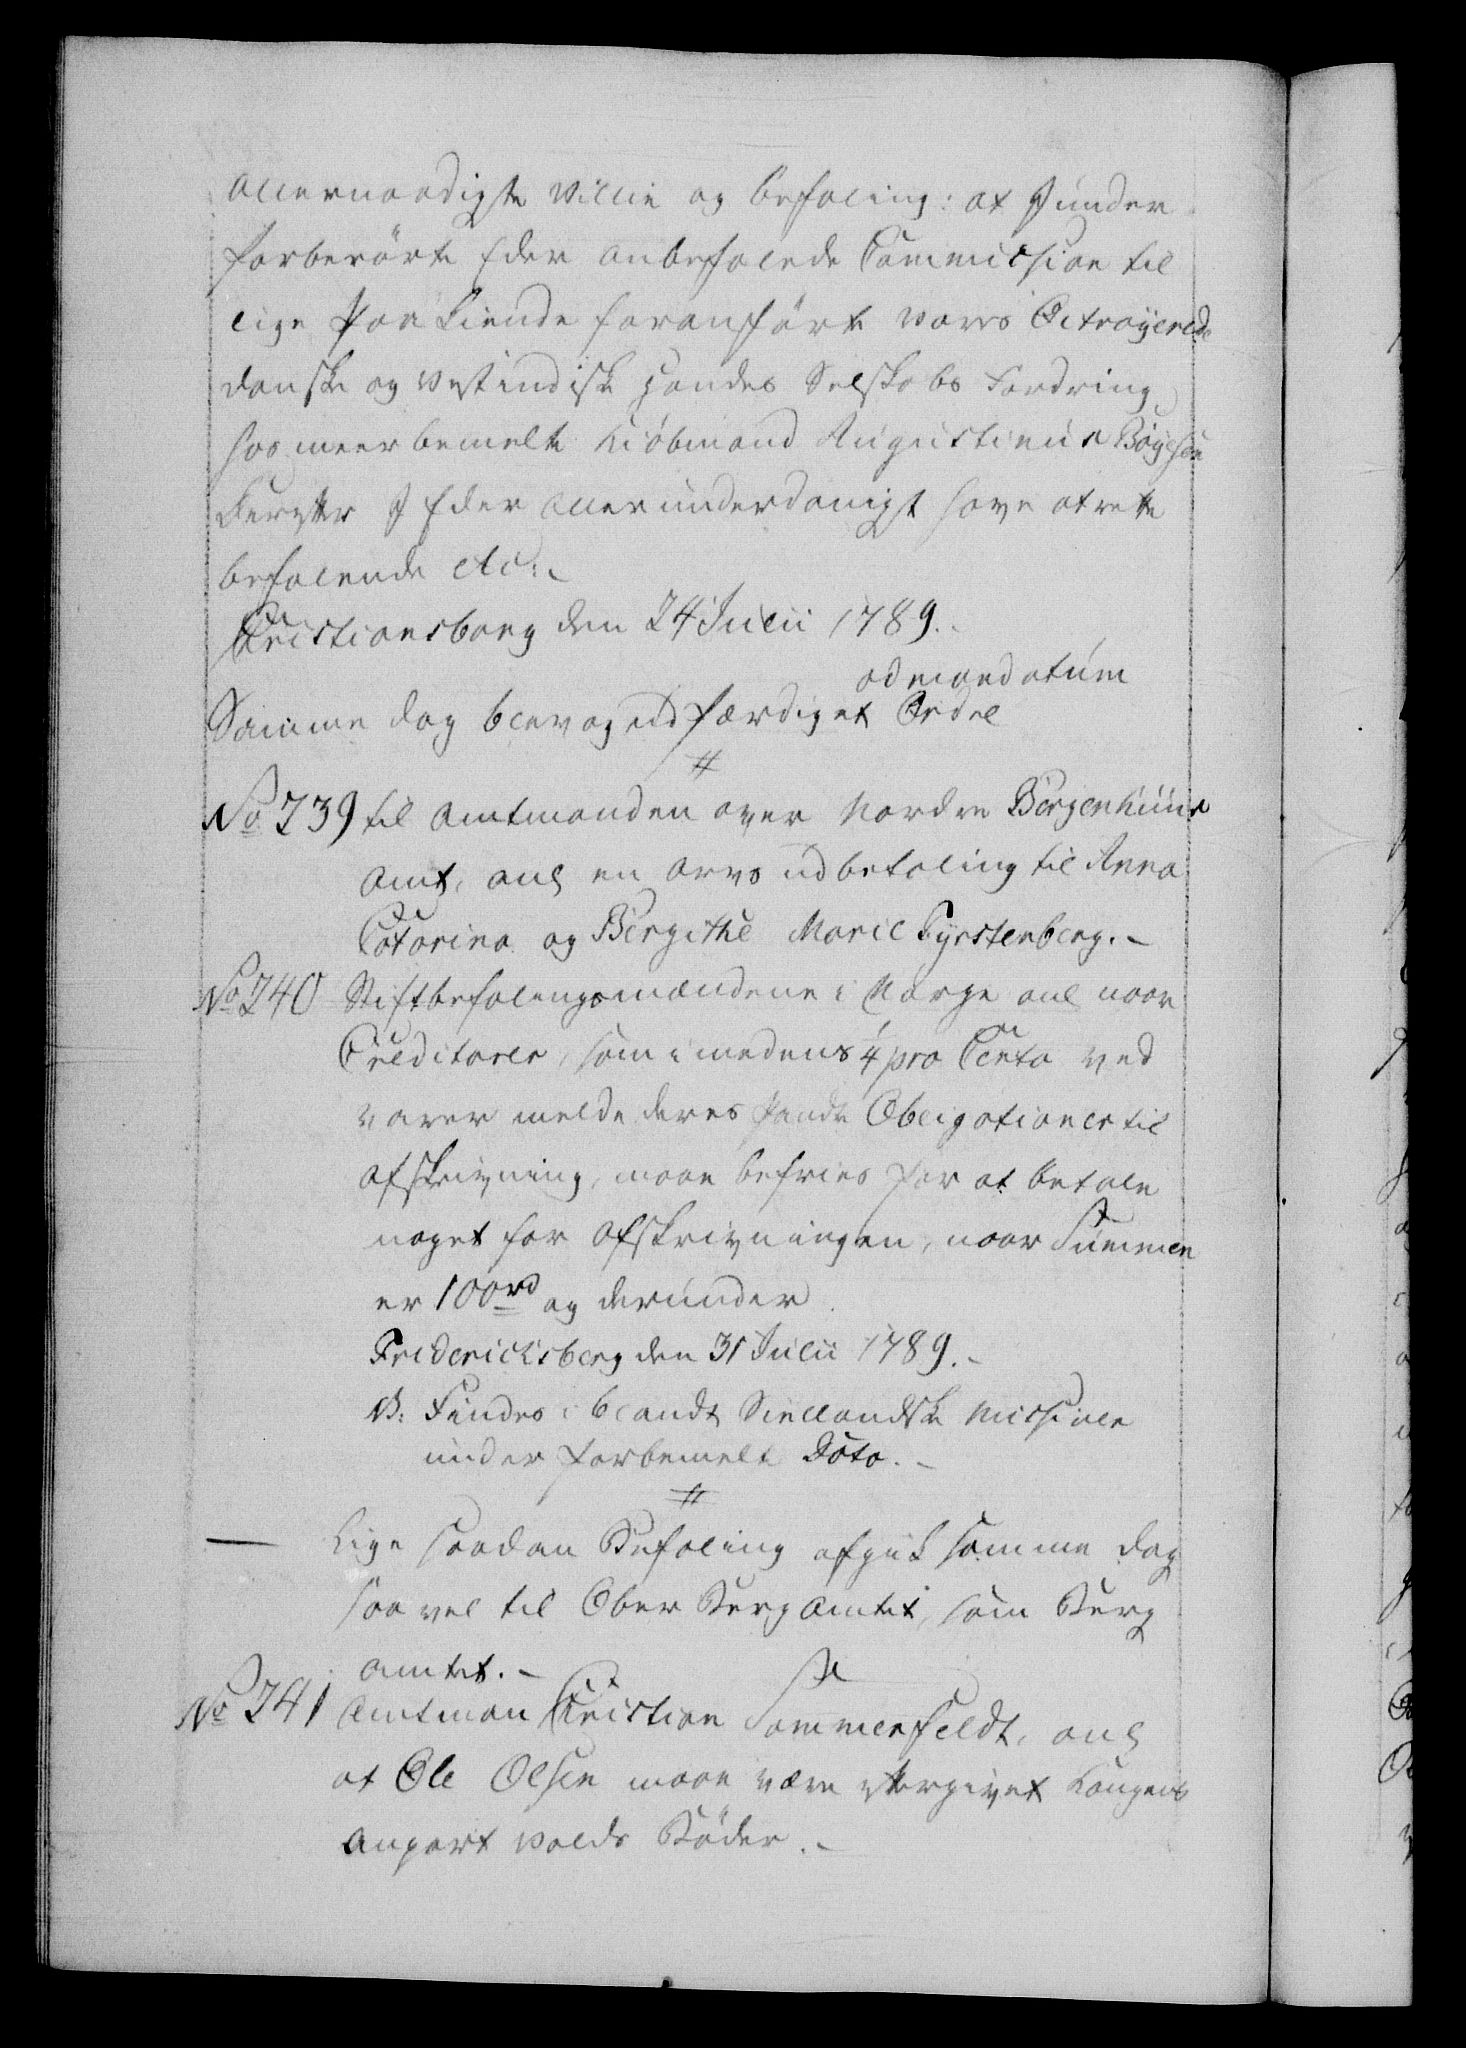 allernaadigste Villie og befaling: at I under
forberörte Eder anbefalede Commission til
lige paakiende foranförte vores Octroyerede
danske og Vestindiske Handels Selskabs Fordring
hos meerbemelte Kiöbmand Augustinus Böyesen
Derefter I Eder allerunderdanigst have at rette
befalende etc:
Christiansborg den 24 Julii 1789.
ad mandatum
Samme dag blev og udfærdiget Ordre
#
No 239 til Amtmanden over Nordre Bergenhuus
Amt, anl en Arvs udbetaling til Anna
Catarina og Bergithe Marie Fyrstenberg.-
No 240 Stiftbefalingsmændene i Norge anl naar
Creditorer, som imedens 4 pro Cento ved
varer melde deres Pandt Obligationer til
afskrivning, maae befries for at betale
noget for Afskrivningen, naar Summen
er 100 rd og derunder.
Friderichsberg den 31 Julii 1789.-
NB: Findes iblandt Siellandske Missiver
under forbemelte Dato.-
#
— Lige saadan Befaling afgik samme dag
saa vel til Ober Berg Amtet, som Berg
amtet.-
No 241 Amtmand Christian Sommerfeldt, anl
at Ole Olsen maae være eftergivet Kongens
anpart Volds Böder.-